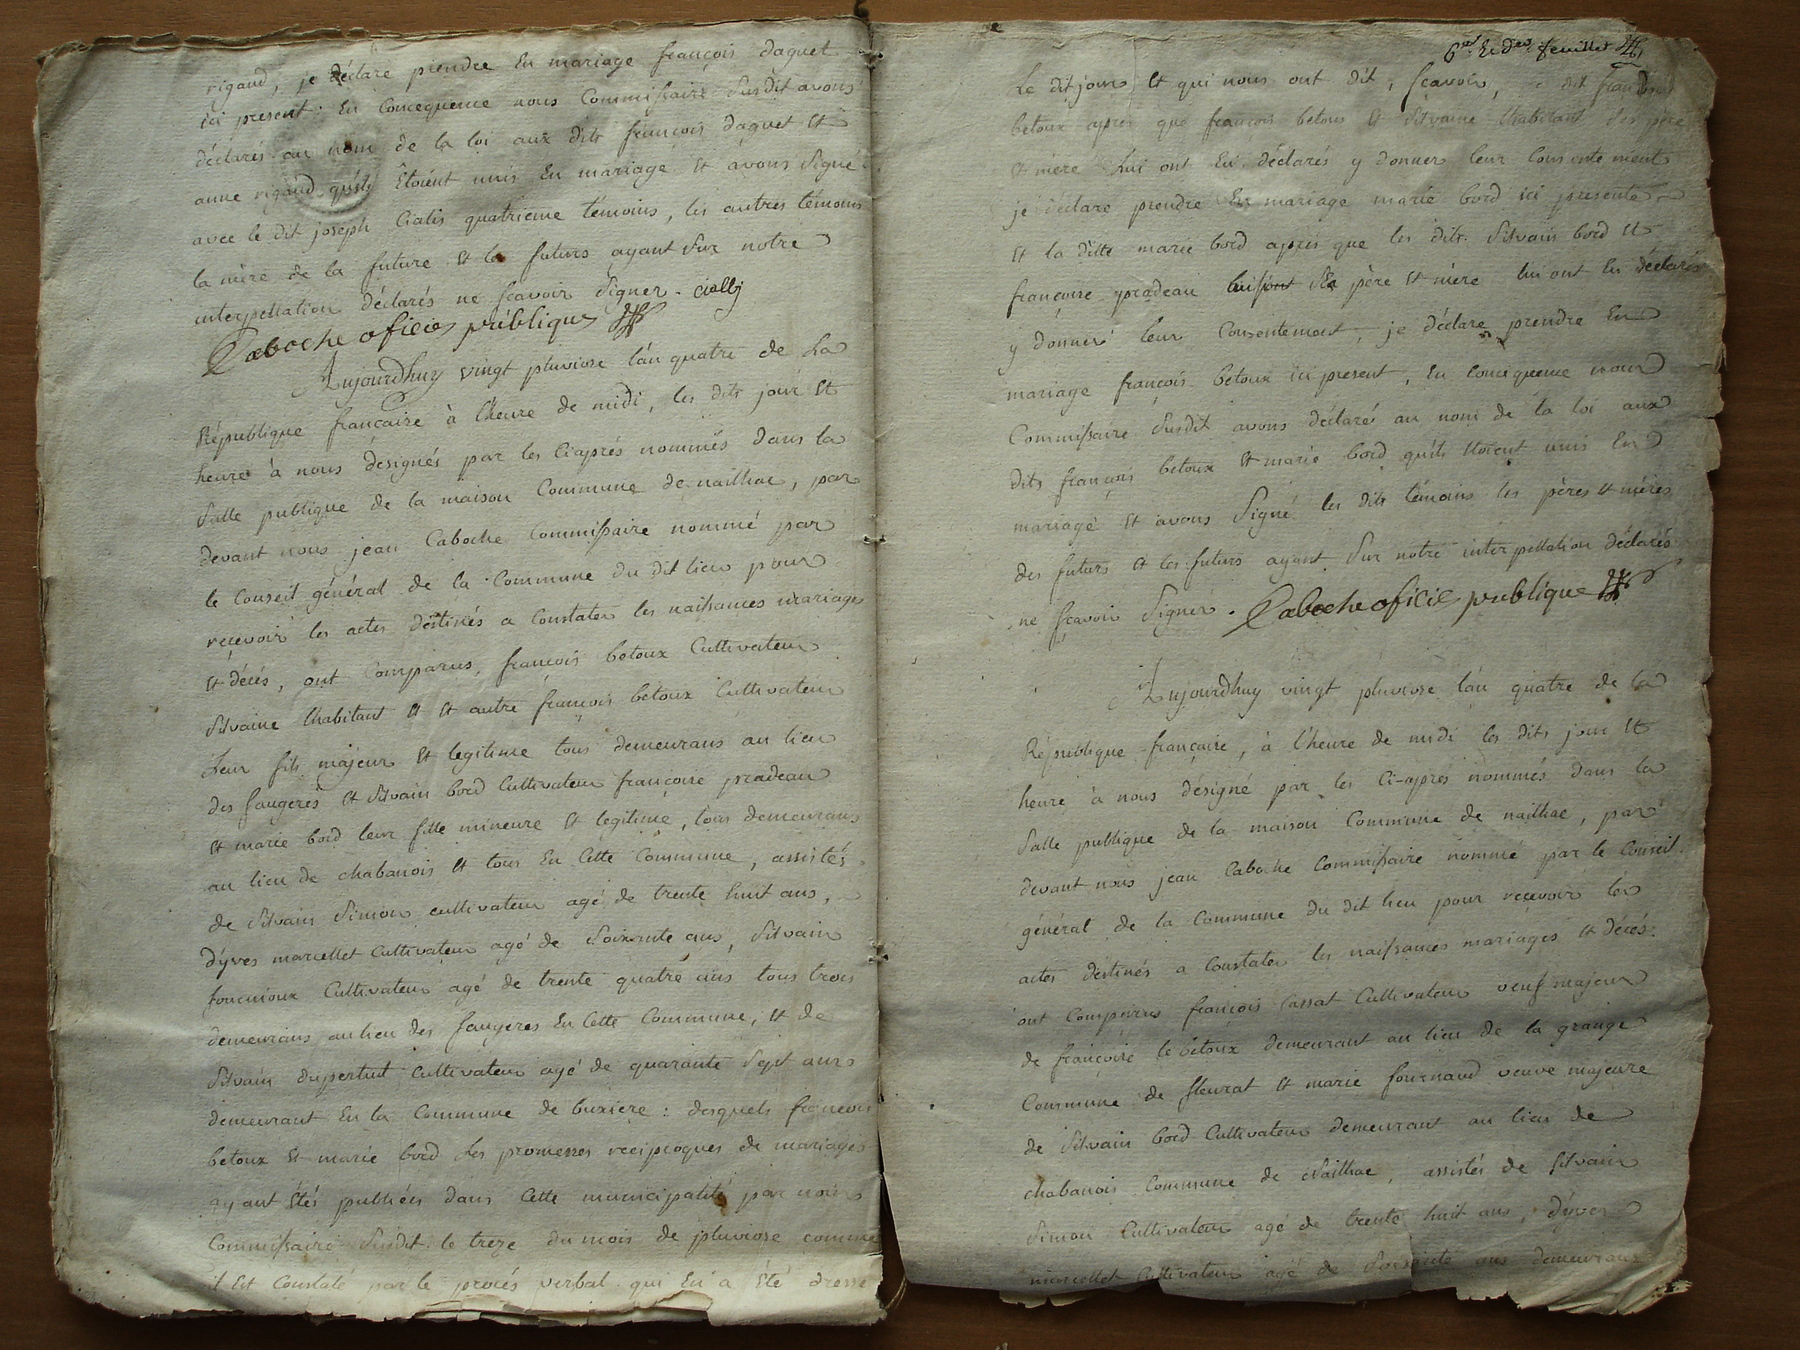 rigaud, je déclare prendre En mariage françois daguet
ici present. En Concequence nous Commissaire Susdit avons
déclarés au nom de la loi aux dits françois daguet Et
anne rigaud qu'ils Étoient unis En mariage Et avons Signé
avec le dit joseph Cialis quatrieme témoins, les autres témoins
la mère de la future Et le futurs ayant Sur notre
interpellation déclarés ne sçavoir Signer. Cially
Caboche oficies publique
Aujourdhuy vingt pluviose l'an quatre de La
République françaire à l'heure de midi, les dits jour Et
heure à nous designés par les Ciaprés nommés dans la
Salle publique de la maison Commune de naillac, par
devant nous jean Caboche Commissaire nommé par
le Conseil général de la Commune du dit lieu pour
recevoir les actes déstinés a Constater les naissances mariages
Et décés, ont Comparus, françois betoux Cultivateur
Silvaine Lhabitant Et Et autre françois betoux Cultivateur
Leur fils majeur Et legitime tous demeurans au lieu
des faugeres Et Silvain bord Cultivateur françoise pradeau
Et marie bord leur fille mineure Et legitime, tous demeurans
au lieu de chabanois Et tous En Cette Commune, assistés
de Silvain Simon cultivateur agé de trente huit ans,
d'yves marcellet Cultivateur agé de Soixante ans, Silvain
fournioux Cultivateur agé de trente quatre ans tous trois
demeurans au lieu des faugeres En Cette Commune, Et de
Silvain dupertuit Cultivateur agé de quarante Sept ans
demeurant En la Commune de buxiere : desquels françois
betoux Et marie bord Les promesses reciproques de mariages
ayant Étés publiées dans Cette municipalité par nous
Commissaire Susdit le treze du mois de pluviose comme
il Est Constaté par le procés verbal qui En a Été dressé
6me Et der feuillet
Le dit jour Et qui nous ont dit, sçavoir, dit françois
betoux aprés que françois betoux Et Silvaine Lhabitant Ses pere
Et mere Lui ont En déclarés y donner leur Consentement
je déclare prendre En mariage marie bord ici presente
Et la ditte marie bord aprés que les dits Silvain bord Et
françoise pradeau Ses père Et mère lui ont En déclarés
y donner leur Consentement, je déclare prendre En
mariage françois betoux ici present, En Concequence nous
Commissaire Susdit avons déclaré au nom de la loi aux
dits françois betoux Et marie bord qu'ils Étoient unis En
mariage Et avons Signé les dits témoins les pères Et mères
des futurs Et les futurs ayant Sur notre interpellation déclarés
ne sçavoir Signer. Caboche oficie publique
Aujourdhuy vingt pluviose l'an quatre de la
République françaire, à l'heure de midi les dits jour Et
heure à nous désigné par les Ci-aprés nommés dans la
Salle publique de la maison Commune de naillac, par
devant nous jean Caboche Commissaire nommé par le Conseil
général de la Commune du dit lieu pour recevoir les
actes déstinés a Constater les naissances mariages Et décés
ont Comparus françois Cassat Cultivateur veuf majeur
de françoise le betoux demeurant au lieu de la grange
Commune de fleurat Et marie fournaud veuve majeure
de Silvain bord Cultivateur demeurant au lieu de
chabanois Commune de Naillac, assistés de Silvain
Simon Cultivateur agé de trente huit ans, d'yves
marcellet Cultivateur agé de Soixante ans demeurans